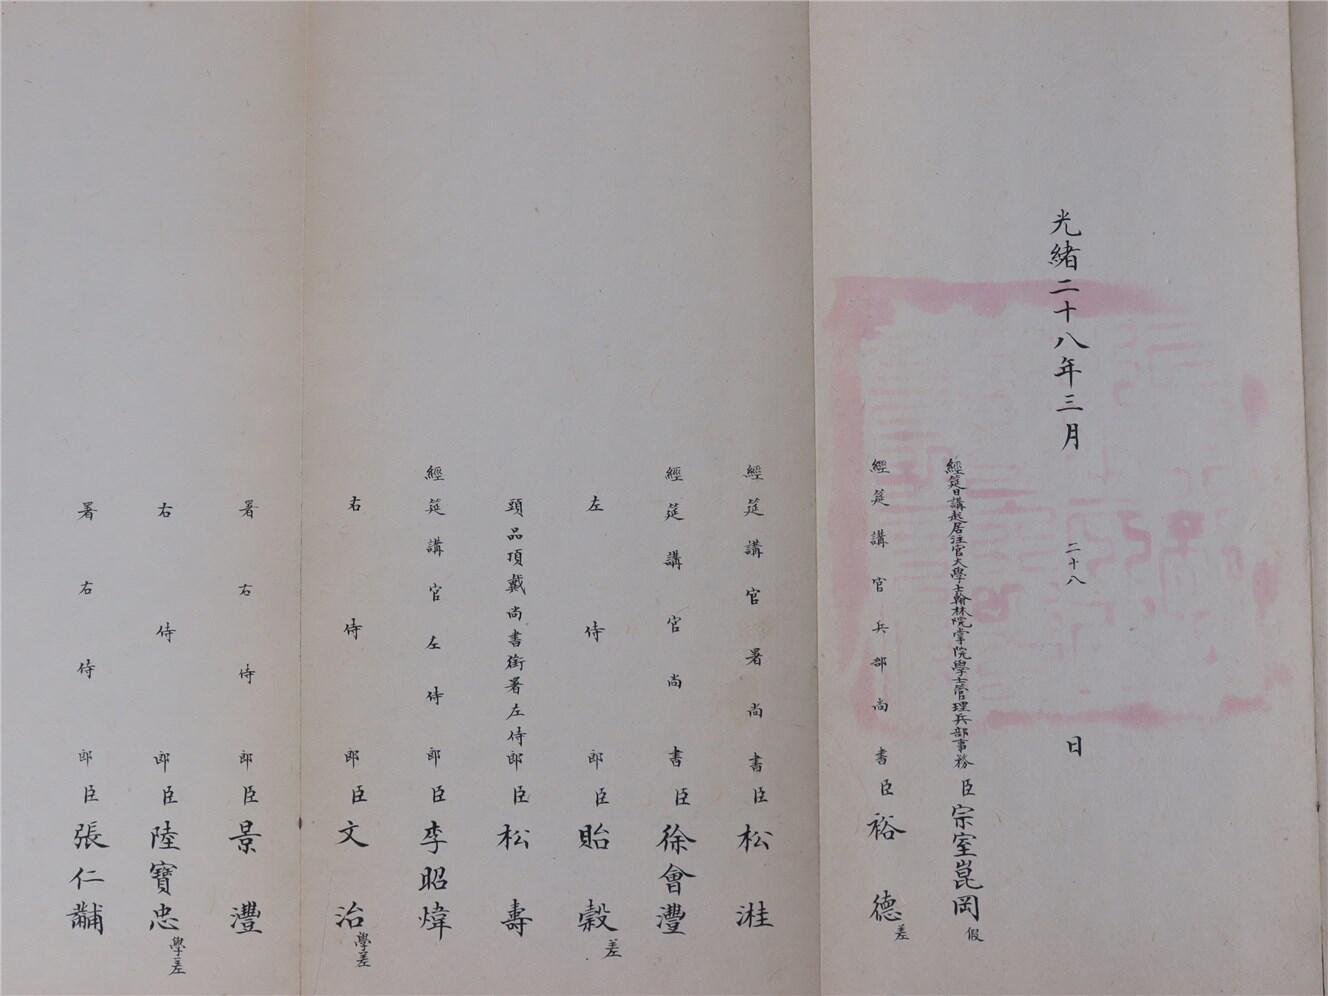 光緒二十八年三月二十八日
經筵日講起居注官大學士翰林院掌院學士管理兵部事務臣宗室崑岡假
經筵講官兵部尚書臣裕德差
經筵講官署尚書臣松溎
經筵講官尚書臣徐會灃
左侍郎臣貽穀差
頭品頂戴尚書銜署左侍郎臣松壽
經筵講官左侍郎臣李昭煒
右侍郎臣文治學差
署右侍郎臣景灃
右侍郎臣陸寶忠學差
署右侍郎臣張仁黼